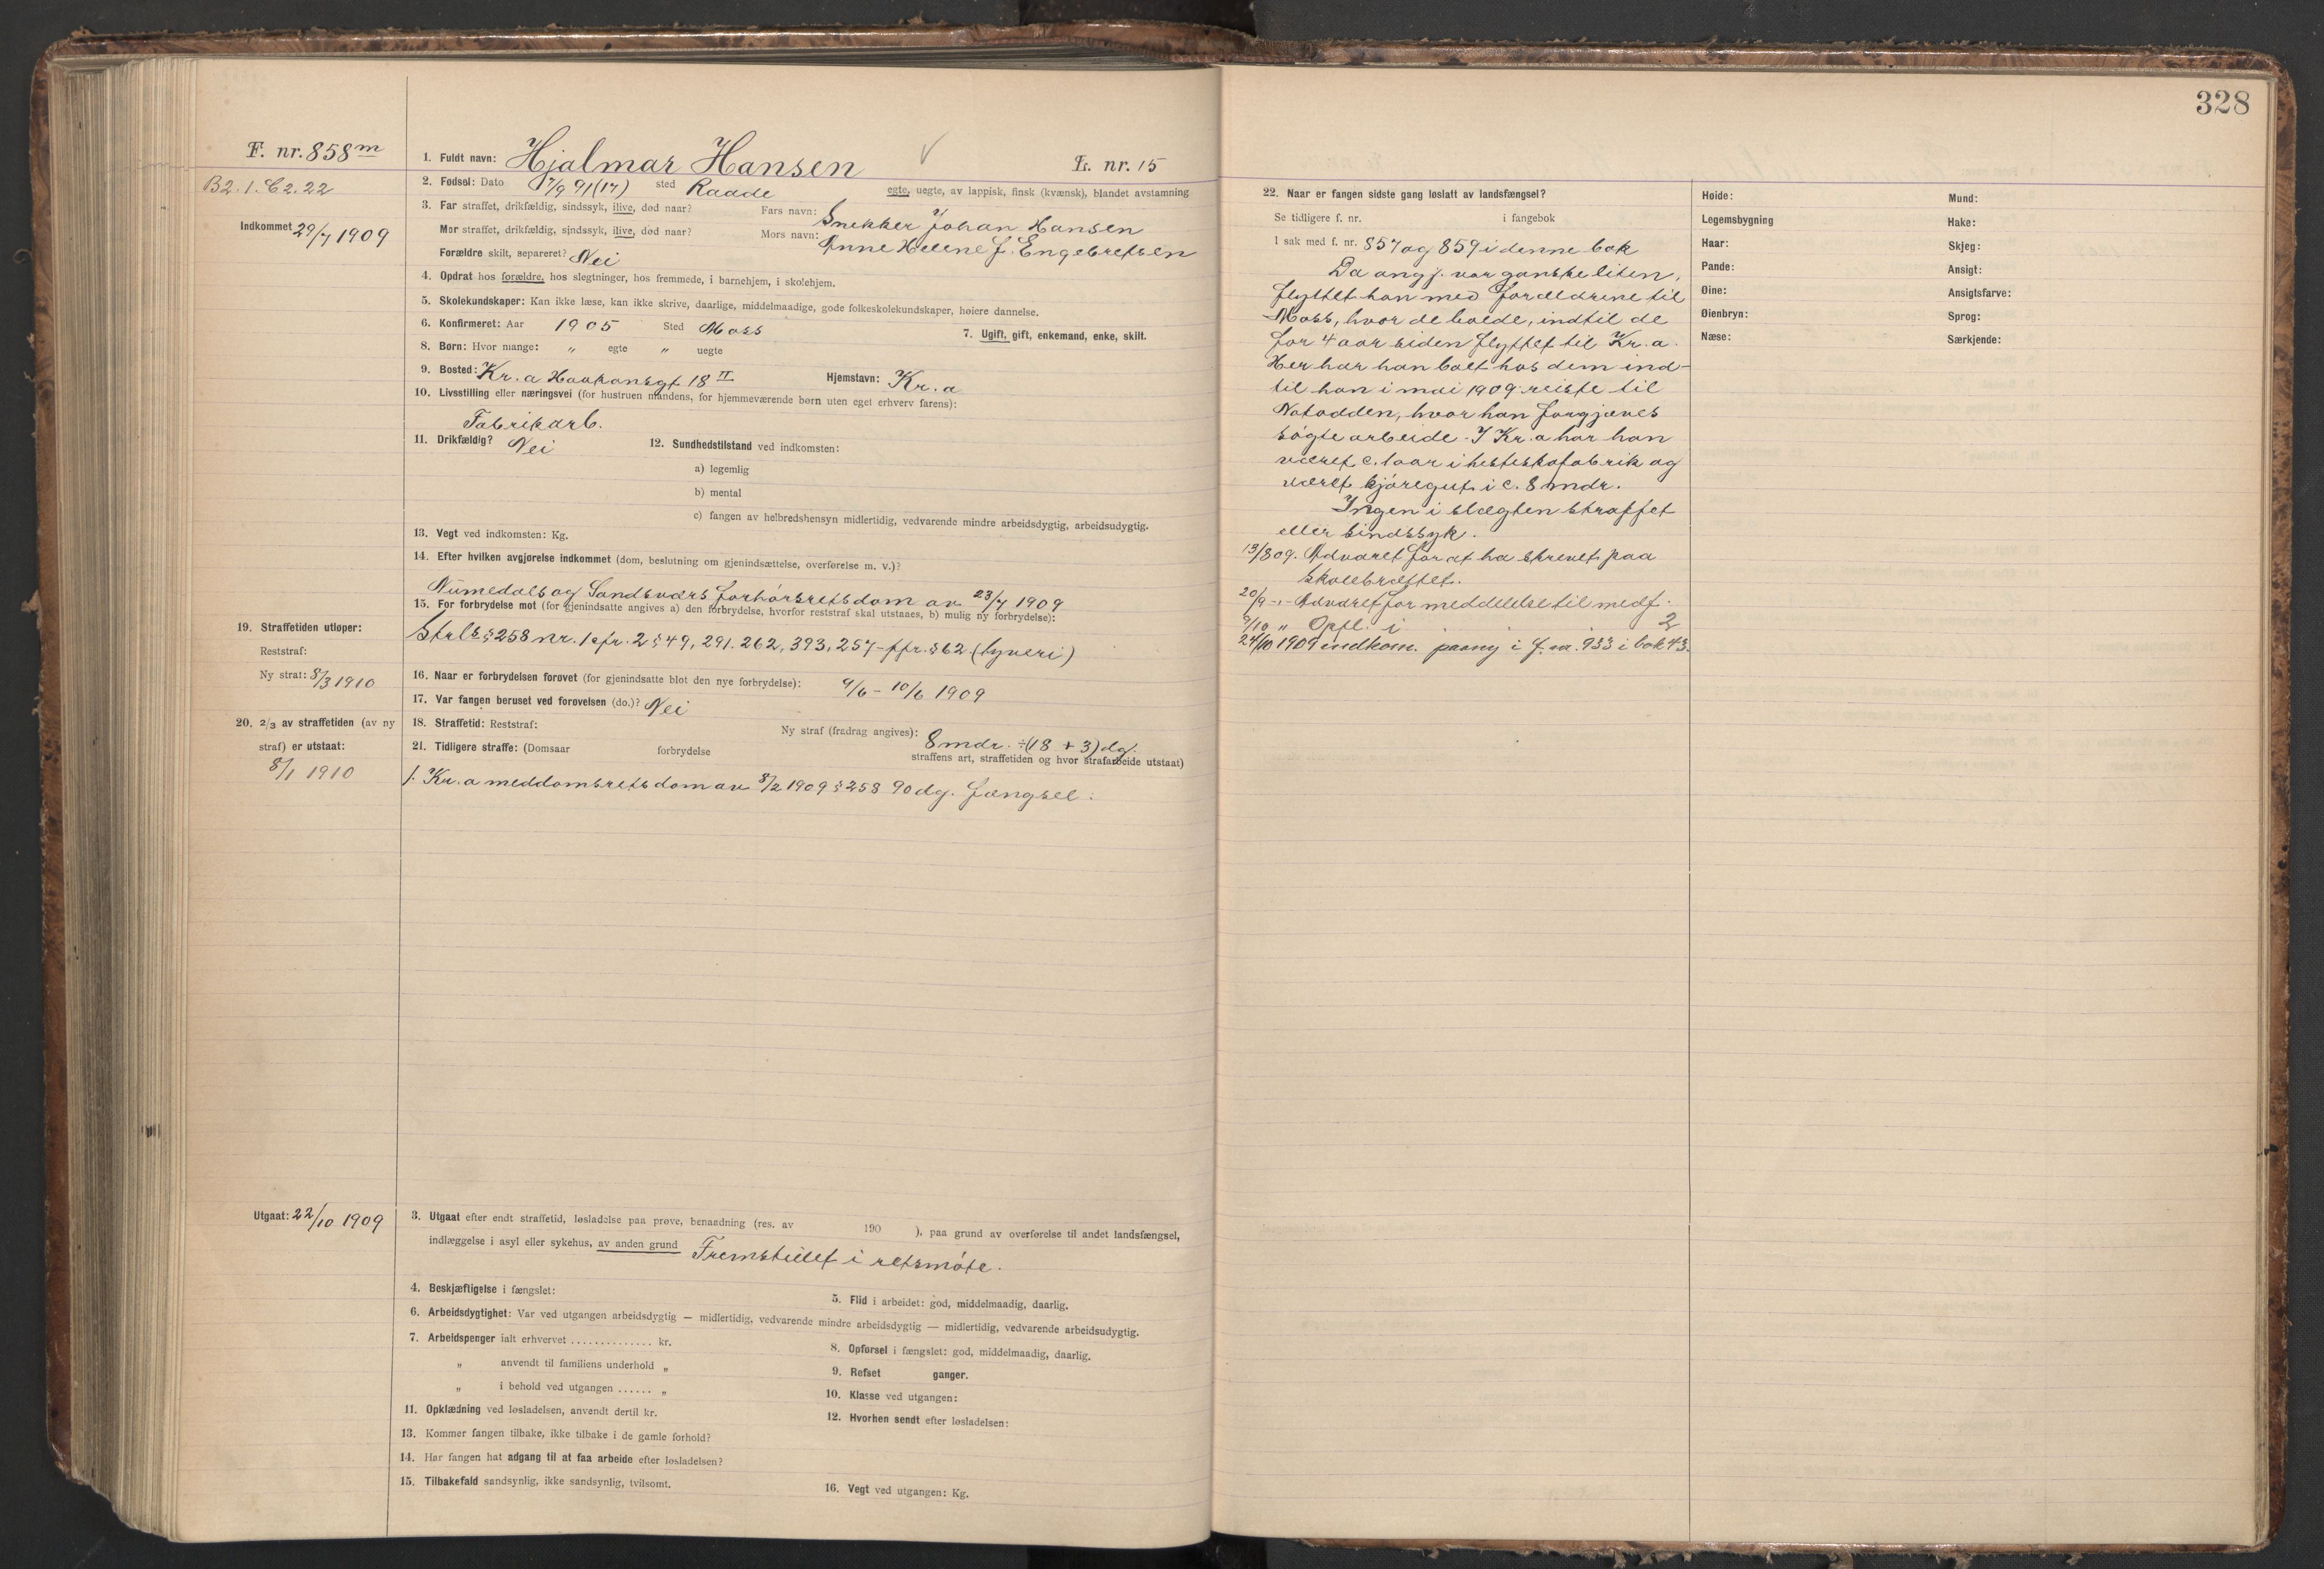 328
F. nr. 858 m
B2.1.C2.22
Indkommet 29/7 1909
1. Fuldt navn: Hjalmar Hansen V L. nr. 15
2. Fødsel: Dato 17/9 91 (17) sted Raade egte, uegte, av lappisk, finsk (kvænsk), blandet avstamning
3. Far straffet, drikfældig, sindssyk, ilive, død naar? Fars navn: Snekker Johan Hansen
Mor straffet, drikfældig, sindssyk, ilive, død naar? Mors navn: Anne Helene f. Engebretsen
Forældre skilt, separeret? Nei
4. Opdrat hos forældre, hos slegtninger, hos fremmede, i barnehjem, i skolehjem.
5. Skolekundskaper: Kan ikke læse, kan ikke skrive, daarlige, middelmaadige, gode folkeskolekundskaper, høiere dannelse.
6. Konfirmeret: Aar 1905 Sted Moss 7. Ugift, gift, enkemand, enke, skilt.
8. Børn: Hvor mange: " egte " uegte
9. Bosted: Kr.a Haakonsgt 18 II Hjemstavn: Kr.a
10. Livsstilling eller næringsvei (for hustruen mandens, for hjemmeværende børn uten eget erhverv farens):
Fabrikarb.
11. Drikfældig? Nei 12. Sundhedstilstand ved indkomsten:
a) legemlig
b) mental
c) fangen av helbredshensyn midlertidig, vedvarende mindre arbeidsdygtig, arbeidsudygtig.
13. Vegt ved indkomsten: Kg.
14. Efter hvilken avgjørelse indkommet (dom, beslutning om gjenindsættelse, overførelse m. v.)?
Numedals og Sandsværs forhørsretsdom av 23/7 1909
15. For forbrydelse mot (for gjenindsatte angives a) den forbrydelse, hvorfor reststraf skal utstaaes, b) mulig ny forbrydelse):
Strls § 258 nr. 1 cfr. 2 § 49, 291. 262, 393, 257 – jfr. § 62 (tyveri)
16. Naar er forbrydelsen forøvet (for gjenindsatte blot den nye forbrydelse): 9/6 – 10/6 1909
17. Var fangen beruset ved forøvelsen (do.)? Nei
18. Straffetid: Reststraf: Ny straf (fradrag angives): 8 mdr. ÷ (18 + 3) dg.
19. Straffetiden utløper:
Reststraf:
Ny straf: 8/3 1910
20. 2/3 av straffetiden (av ny
straf) er utstaat:
8/1 1910
21. Tidligere straffe: (Domsaar forbrydelse straffens art, straffetiden og hvor strafarbeide utstaat)
1. Kr.a meddomsretsdom av 8/2 1909 § 258 90 dg. fængsel.
Utgaat: 22/10 1909
3. Utgaat efter endt straffetid, løsladelse paa prøve, benaadning (res. av 190 ), paa grund av overførelse til andet landsfængsel,
indlæggelse i asyl eller sykehus, av anden grund Fremstillet i retsmøte.
4. Beskjæftigelse i fængslet: 5. Flid i arbeidet: god, middelmaadig, daarlig.
6. Arbeidsdygtighet: Var ved utgangen arbeidsdygtig — midlertidig, vedvarende mindre arbeidsdygtig — midlertidig, vedvarende arbeidsudygtig.
7. Arbeidspenger ialt erhvervet .............. kr. 8. Opførsel i fængslet: god, middelmaadig, daarlig.
" anvendt til familiens underhold " 9. Refset ganger.
" i behold ved utgangen ...... " 10. Klasse ved utgangen:
11. Opklædning ved løsladelsen, anvendt dertil kr. 12. Hvorhen sendt efter løsladelsen:
13. Kommer fangen tilbake, ikke tilbake i de gamle forhold?
14. Har fangen hat adgang til at faa arbeide efter løsladelsen?
15. Tilbakefald sandsynlig, ikke sandsynlig, tvilsomt. 16. Vegt ved utgangen: Kg.
22. Naar er fangen sidste gang løslatt av landsfængsel?
Se tidligere f. nr. i fangebok
I sak med f. nr. 857 og 859 i denne bok
Da angj. var ganske liten,
flyttet han med forældrene til
Moss, hvor de bodde, indtil de
for 4 aar siden flyttet til Kr.a.
Her har han boet hos dem ind-
til han i mai 1909 reiste til
Notodden, hvor han forgjæves
søgte arbeide. I Kr.a har han
været c. 1 aar i hesteskofabrik og
været kjøregut i c. 8 mndr.
Ingen i slægten straffet
eller sindssyk.
13/8 09. Advaret for at ha skrevet paa
skolebrættet.
20/9 -"- Advaret for meddelelse til medf.
9/10 " Opfl. i 2
24/10 1909 indkom. paany i f. nr. 933 i bok 43.
Høide:
Legemsbygning
Haar:
Pande:
Øine:
Øienbryn:
Næse:
Mund:
Hake:
Skjeg:
Ansigt:
Ansigtsfarve:
Sprog:
Særkjende: